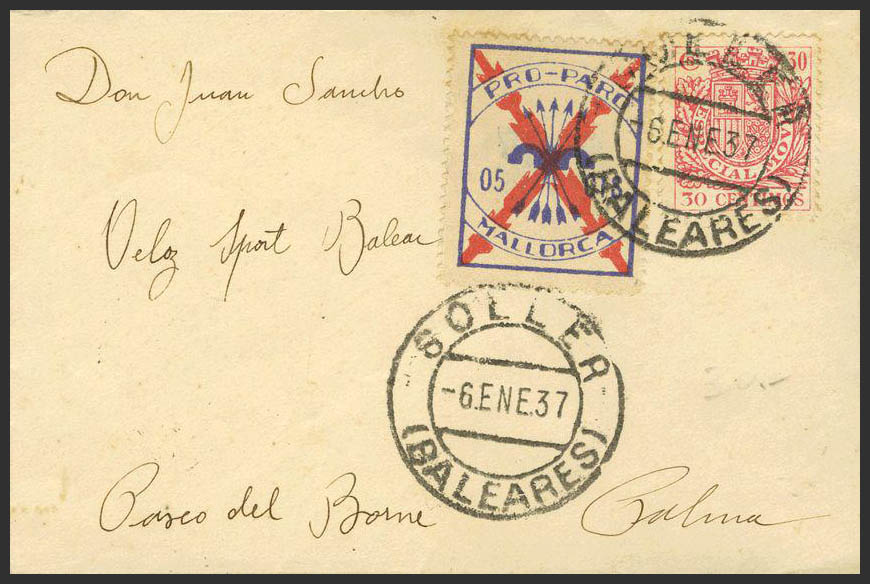 Don Juan Sancho
Veloz Sport Balear
Paseo del Borne Palma
PRO-PARO
05
MALLORCA
30
ESPECIAL MOVIL
30 CENTIMOS
SOLLER
-6.ENE.37
(BALEARES)
SOLLER
-6.ENE.37
(BALEARES)